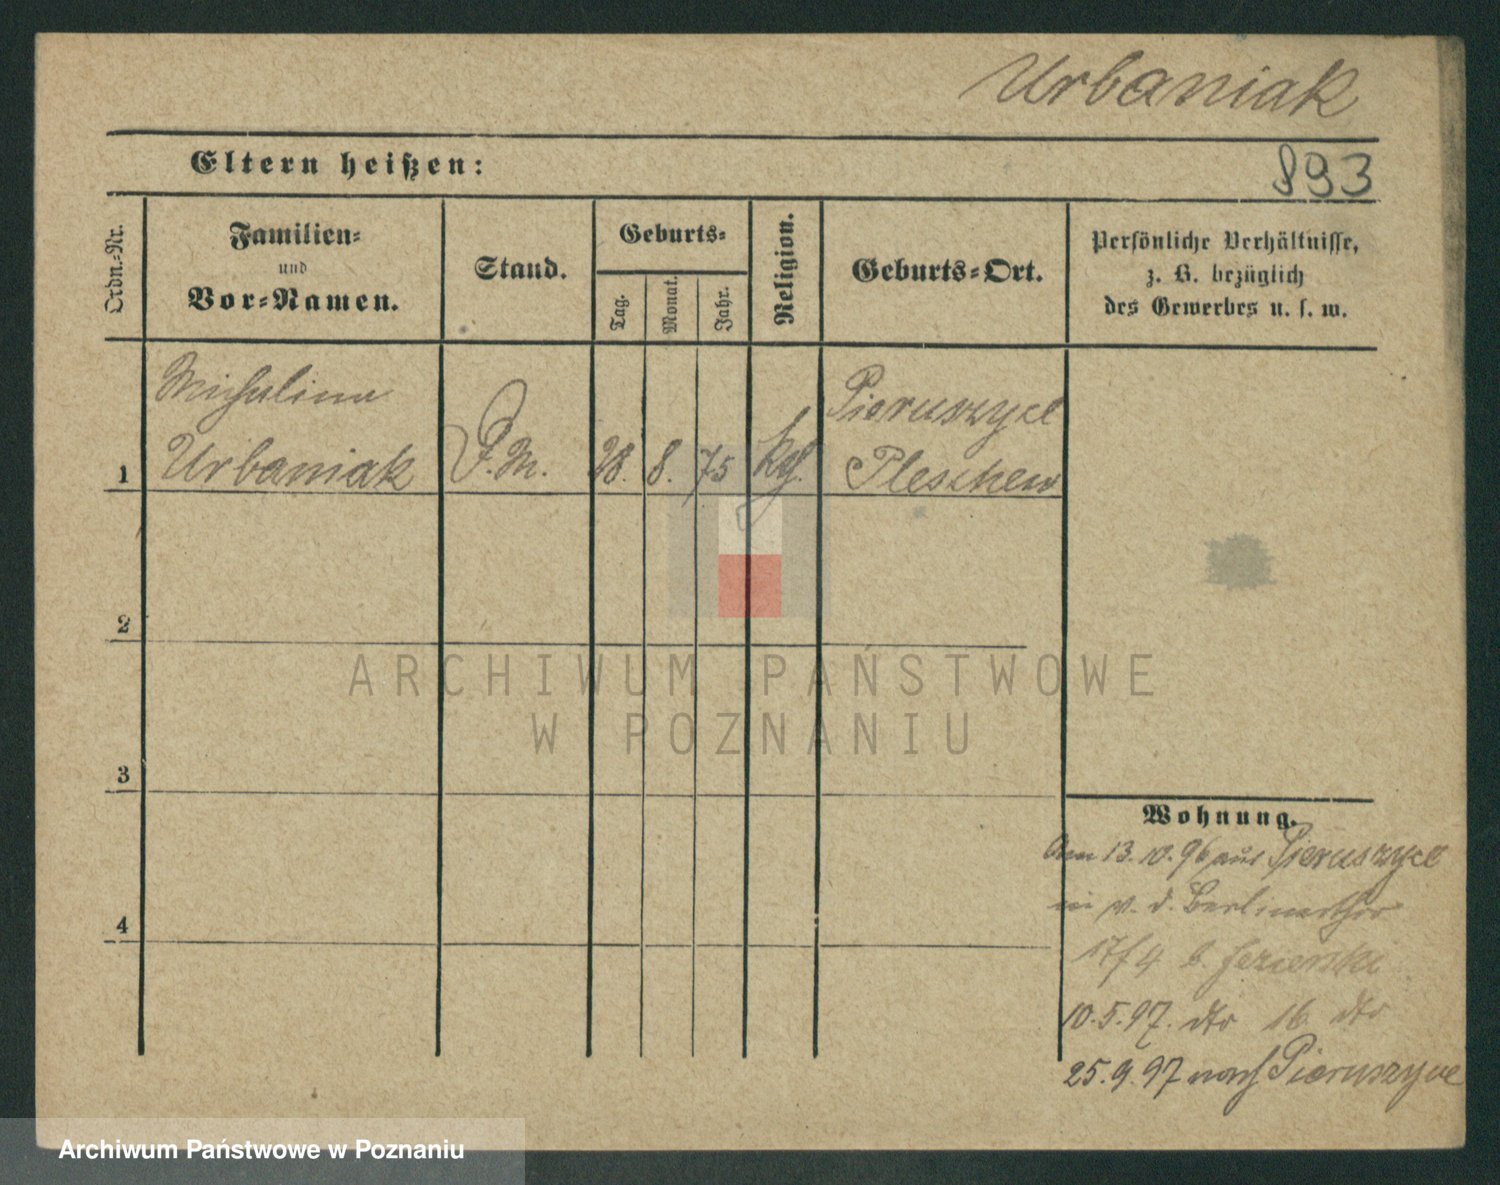 Urbaniak
Eltern heißen:
893
Ordn.-Nr.
Familien-
und
Vor-Namen.
Stand.
Geburts-
Tag.
Monat.
Jahr.
Religion.
Geburts-Ort.
Persönliche Verhältnisse,
z. B. bezüglich
des Gewerbes u. s. w.
Michalina
Pieruszyce
1 Urbaniak D.M. 28. 8. 75 kth. Pleschen
2
ARCHIWUM PAŃSTWOWE
W POZNANIU
3
Wohnung.
Am 13.10.96 aus Pieruszyce
in v. d. Berlinerthor
17/4 b.
10.5.97. dto 16 dto
4
25.9.97 nach Pieruszyce
Archiwum Państwowe w Poznaniu